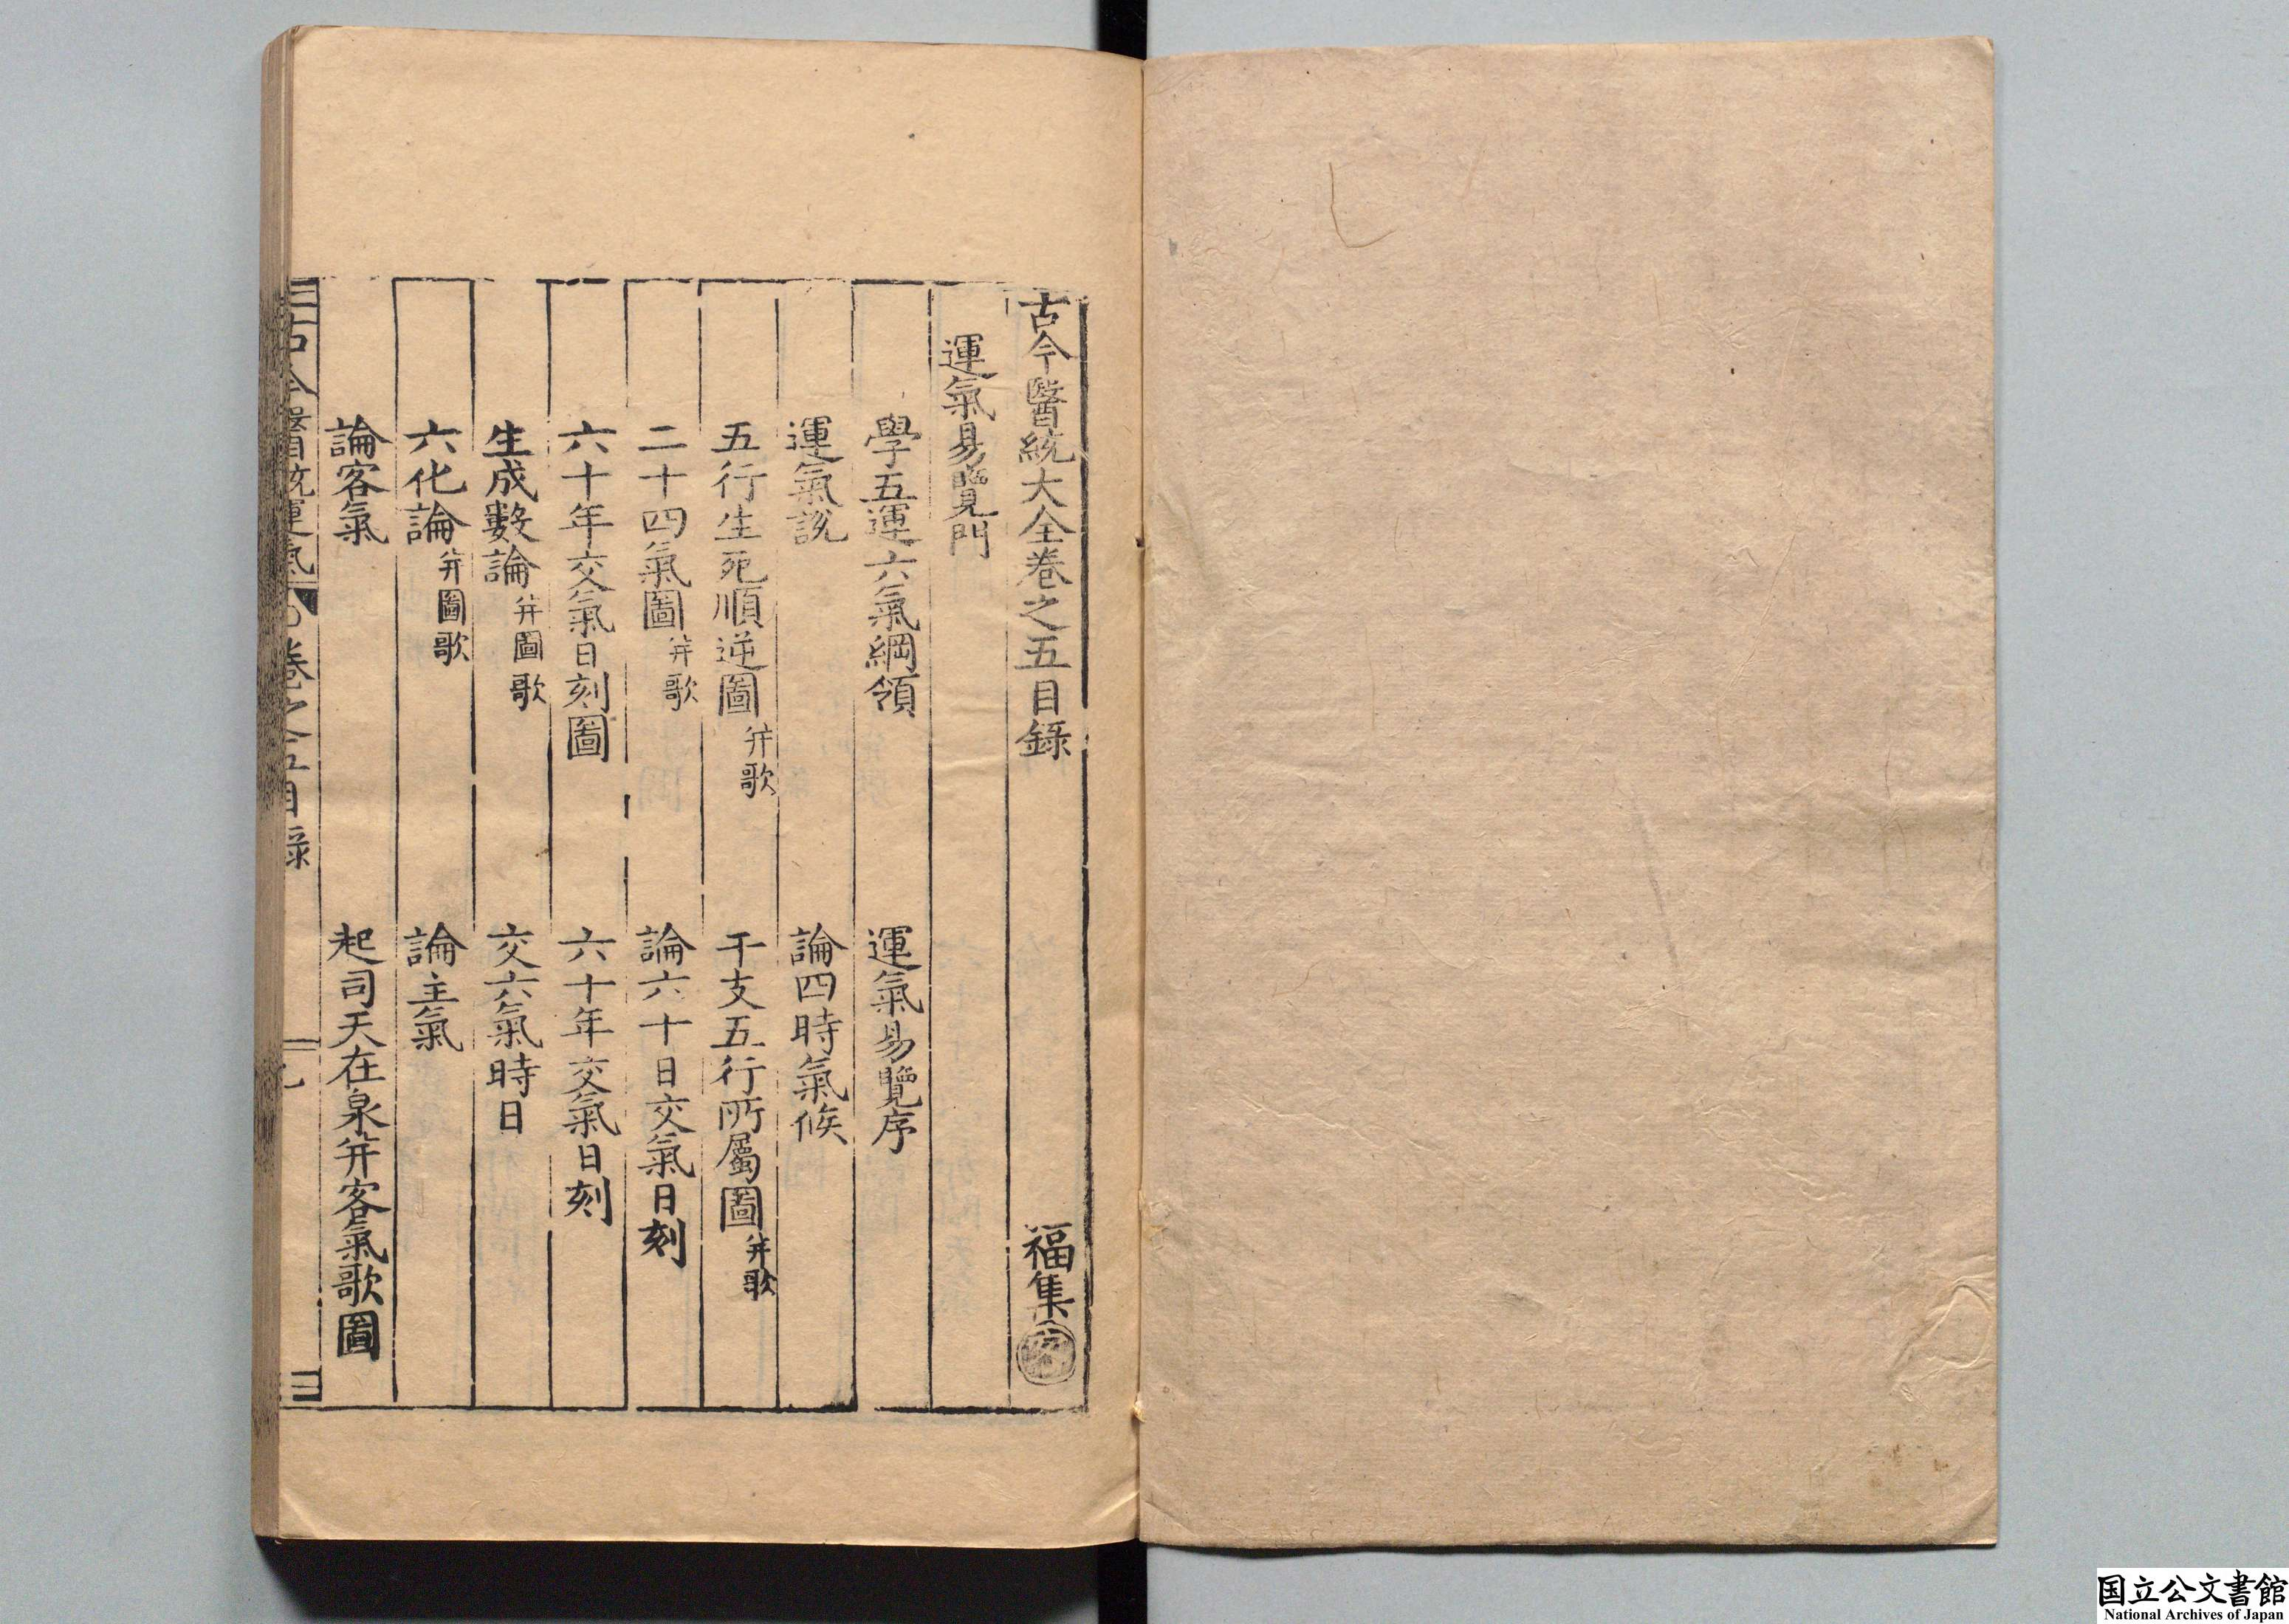 古今醫統大全卷之五目錄 福集
運氣易覽門
學五運六氣綱領 運氣易覽序
運氣說 論四時氣候
五行生死順逆圖并歌 干支五行所屬圖并歌
二十四氣圖并歌 論六十日交氣日刻
六十年交氣日刻圖 六十年交氣日刻
生成數論并圖歌 交六氣時日
六化論并圖歌 論主氣
論客氣 起司天在泉并客氣歌圖
古今醫統運氣 卷之五目錄
国立公文書館
National Archives of Japan